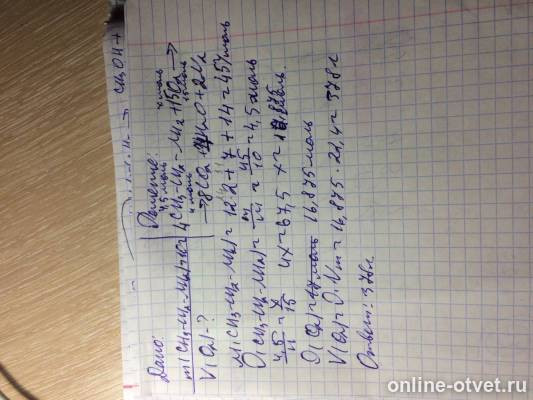 CH3OH +
Дано:
Решение:
4,5 моль
x моль
4CH3-CH2-NH2 + 15O2 →
4 моль
15 моль
→ 8CO2 + 14H2O + 2N2
m(CH3-CH2-NH2)
V(O2) - ?
M(CH3-CH2-NH2) = 12·2 + 7 + 14 = 45 г/моль
= 4,5 моль
4,5/4 = x/15 4x = 67,5 x = 16,875 моль.
16,875 моль
V(O2) = ν·Vm = 16,875·22,4 = 378 л
Ответ: 378 л
online-otvet.ru